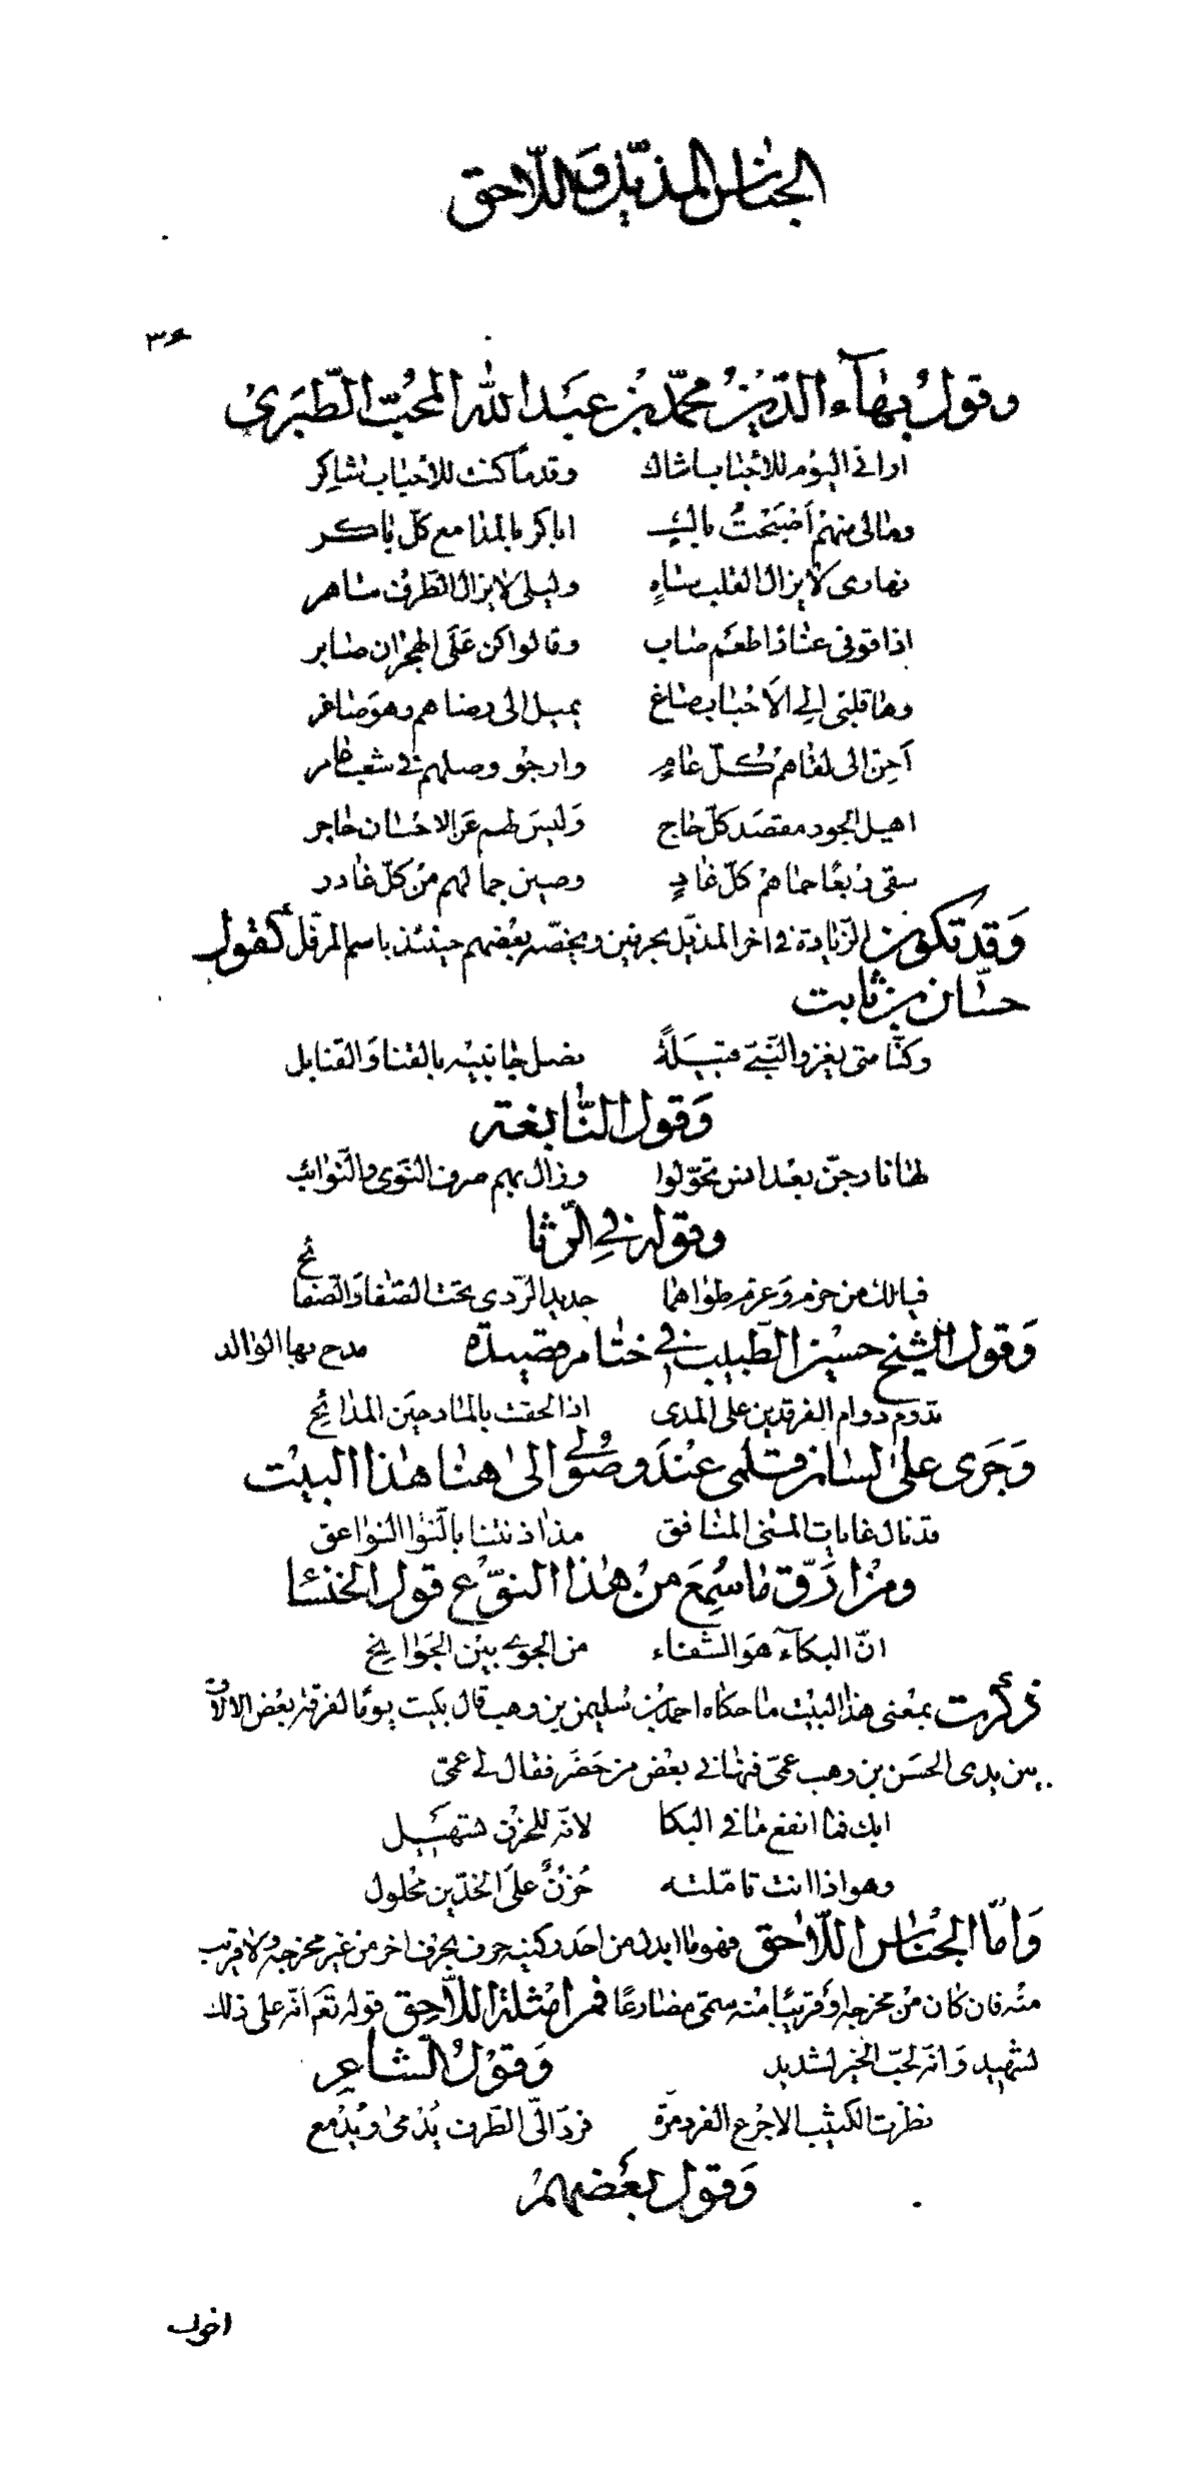 الجناس المذيّل واللّاحق
٣٤
وقول بهآء الدّين محمّد بن عبد الله المحبّ الطّبري
اراني اليوم للأحباب شاك وقدما كنت للأحباب شاكر
ومالي منهم أصبحت باكٍ اباكر بالمدامع كلّ باكر
نهاري لا يزال القلب ساهٍ وليلي لا يزال الطّرف ساهر
اذاقوني عنادا طعم صاب وقالوا كن على الهجران صابر
وها قلبي الى الاحباب صاغ يميل الى رضاهم وهو صاغر
أحنّ الى لقاهم كلّ عامٍ وارجو وصلهم في شعب عامر
اهيل الجود مقصد كلّ حاج وليس لهم عن الاحسان حاجر
سقى ربعًا حماهم كلّ غادٍ وصين جمالهم من كلّ غادر
وقد تكون الزّيادة في اخر المذيّل بحرفين ويخصّه بعضهم حينئذ باسم المرفّل كقول
حسّان بن ثابت
وكنّا متى يغزو النّبيّ قبيلةً نصل جانبيه بالقنا والقنابل
وقول النّابغة
لها نار جنّ بعد انس تحوّلوا وزال بهم صرف النّوى والنّوائب
وقوله في الرّثا
فيالك من حزم وعزم طواهما جديد الرّدى تحت الصّفا والصّفائح
وقول الشيخ حسين الطّبيب في ختام قصيدة مدح بها الوالد
تدوم دوام الفرقدين على المدى اذا لحقت بالمادحين المدائح
وجرى على لسان قلمي عند وصولي الى هنا هذا البيت
قد نال غايات المنى المنافق مذ اذنتنا بالنّوا النواعق
ومن ارقّ ما سمع من هذا النّوع قول الخنسا
انّ البكآء هو الشّفاء من الجوى بين الجوانح
ذكرت بمعنى هذا البيت ما حكاه احمد بن سليمن بن وهب قال بكيت يومًا لفرقة بعض الالاف
بين يدي الحسن بن وهب عمّي فنهاني بعض من حضر فقال لي عمّي
ابك فما انفع ما في البكا لانّه للحزن تسهيل
وهو اذا انت تامّلته حزنٌ على الخدّين محلول
وامّا الجناس اللّاحق فهو ما ابدل من احد ركنيه حرف بحرف اخر من غير مخرجه ولا قريب
منه فان كان من مخرجه أو قريبًا منه سمّي مضارعًا فمن امثلة اللّاحق قوله تعم انّه على ذلك
لشهيد وانّه لحبّ الخير لشديد وقول الشاعر
نظرت الكثيب الاجرع الفرد مرّة فردّ الىّ الطّرف يدمى ويدمع
وقول بعضهم